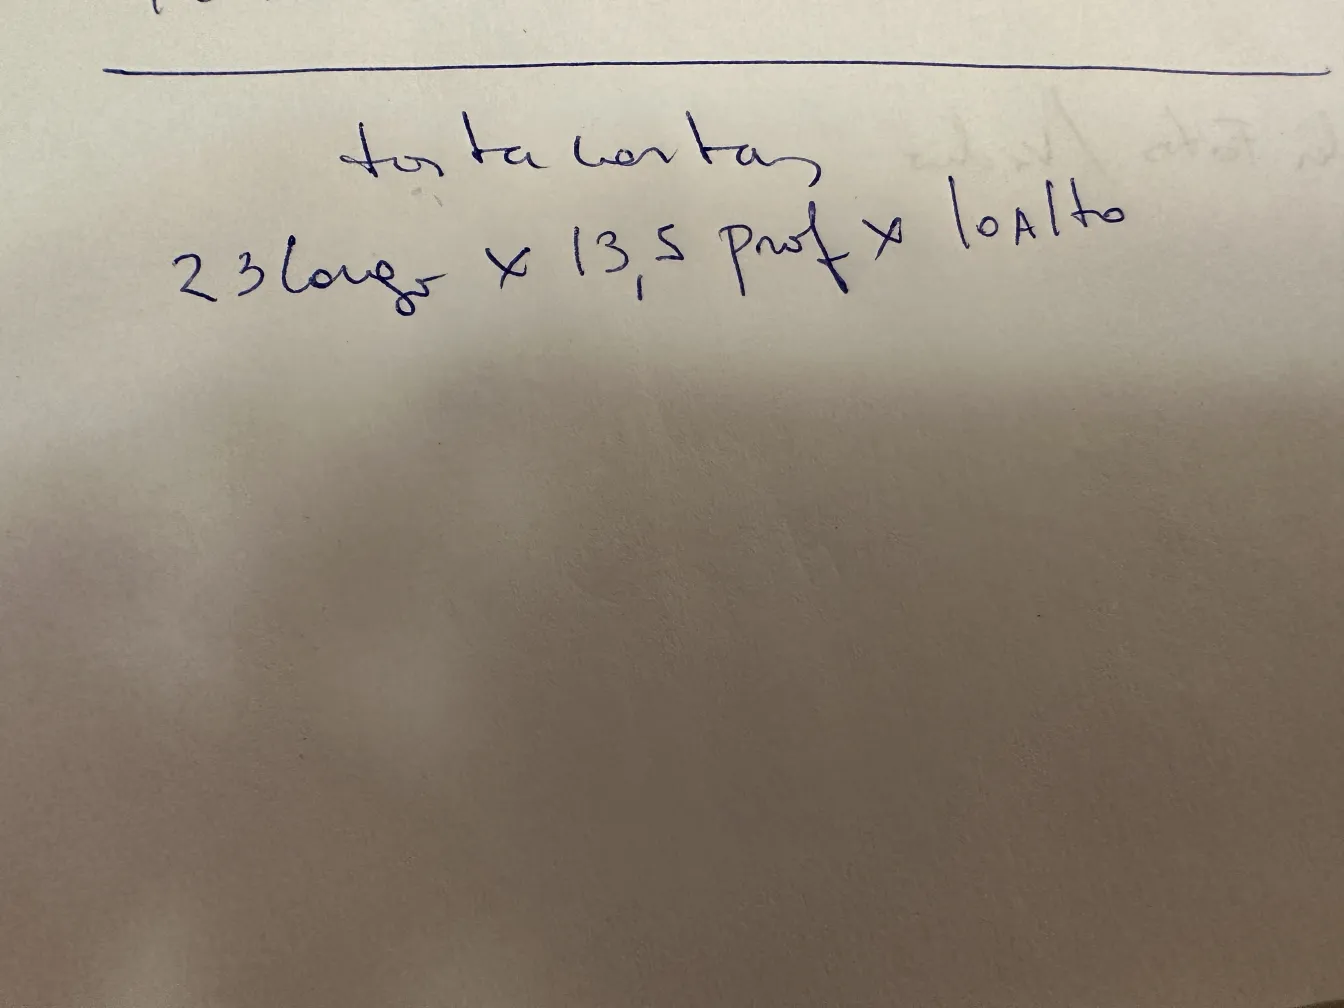 tosta cortas
23 largo x 13,5 prof x 10 Alto